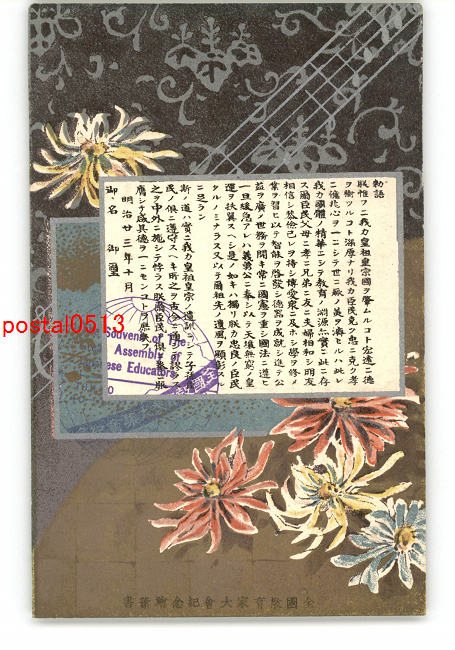 勅語
朕惟フニ我カ皇祖皇宗國ヲ肇ムルコト宏遠ニ德
ヲ樹ツルコト深厚ナリ我カ臣民克ク忠ニ克ク孝
ニ億兆心ヲ一ニシテ世々厥ノ美ヲ濟セルハ此レ
我カ國體ノ精華ニシテ教育ノ淵源亦實ニ此ニ存
ス爾臣民父母ニ孝ニ兄弟ニ友ニ夫婦相和シ朋友
相信シ恭儉己レヲ持シ博愛衆ニ及ホシ學ヲ修メ
業ヲ習ヒ以テ智能ヲ啓發シ德器ヲ成就シ進テ公
益ヲ廣メ世務ヲ開キ常ニ國憲ヲ重シ國法ニ遵ヒ
一旦緩急アレハ義勇公ニ奉シ以テ天壤無窮ノ皇
運ヲ扶翼スヘシ是ノ如キハ獨リ朕カ忠良ノ臣民
タルノミナラス又以テ爾祖先ノ遺風ヲ顯彰スル
ニ足ラン
斯ノ道ハ實ニ我カ皇祖皇宗ノ遺訓ニシテ子孫
民ノ俱ニ遵守スヘキ所之ヲ古今ニ通シ
之ヲ中外ニ施シテ悖ラス朕爾臣民ト俱ニ拳々服
膺シテ咸其德ヲ一ニセンコトヲ庶幾フ
明治廿三年十月
御名 御璽
Souvenir of The
Assembly of
ese Educators
全國
postal0513
全國教育家大會紀念繪葉書